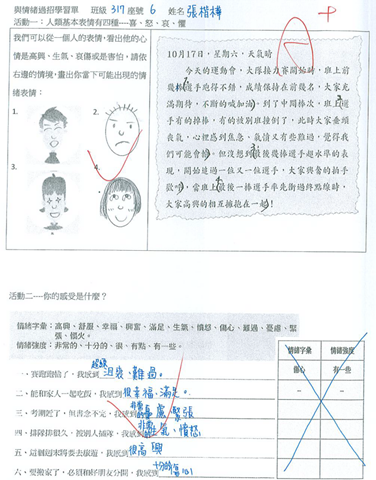 與情緒過招學習單 班級 317 座號 6 姓名
活動一:人類基本表情有四種---喜、怒、哀、懼
我們可以從一個人的表情,看出他的心
情是高興、生氣、哀傷或是害怕,請依
右邊的情境,畫出你當下可能出現的情
緒表情:
1.
2.
3.
4.
10月17日,星期六,天氣晴
今天的運動會,大隊接力賽開始時,班上前
幾棒選手跑得不錯,成績保持在前幾名,大家充
滿期待,不斷的喊加油
到了中間棒次,班上選
手有的掉棒,有的被別班撞倒了,此時大家垂頭
喪氣,心裡感到焦急、氣憤又有些難過,覺得我
們可能會輸
但沒想到最後幾棒選手超水準的表
現,開始追過一位又一位選手,大家興奮的拍手
歡呼
當班上最後一棒選手率先衝過終點線時,
大家高興的相互擁抱在一起!
活動二----你的感受是什麼?
情緒字彙:高興、舒服、幸福、興奮、滿足、生氣、憤怒、傷心、難過、憂慮、緊
張、惱火。
情緒強度:非常的、十分的、很、有點、有一些。
一、賽跑跑輸了,我感到超級沮喪、難過。
二、能和家人一起吃飯,我感到很幸福、滿足。
三、考測近了,但書念不完,我感到非常憂慮、緊張
四、排隊排很久,被別人插隊,我感到非常生氣、憤怒
五、這個週末將要去旅遊,我感到很高興
六、要搬家了,必須和好朋友分開,我感到十分的傷心
情緒字彙 情緒強度
傷心 有一些